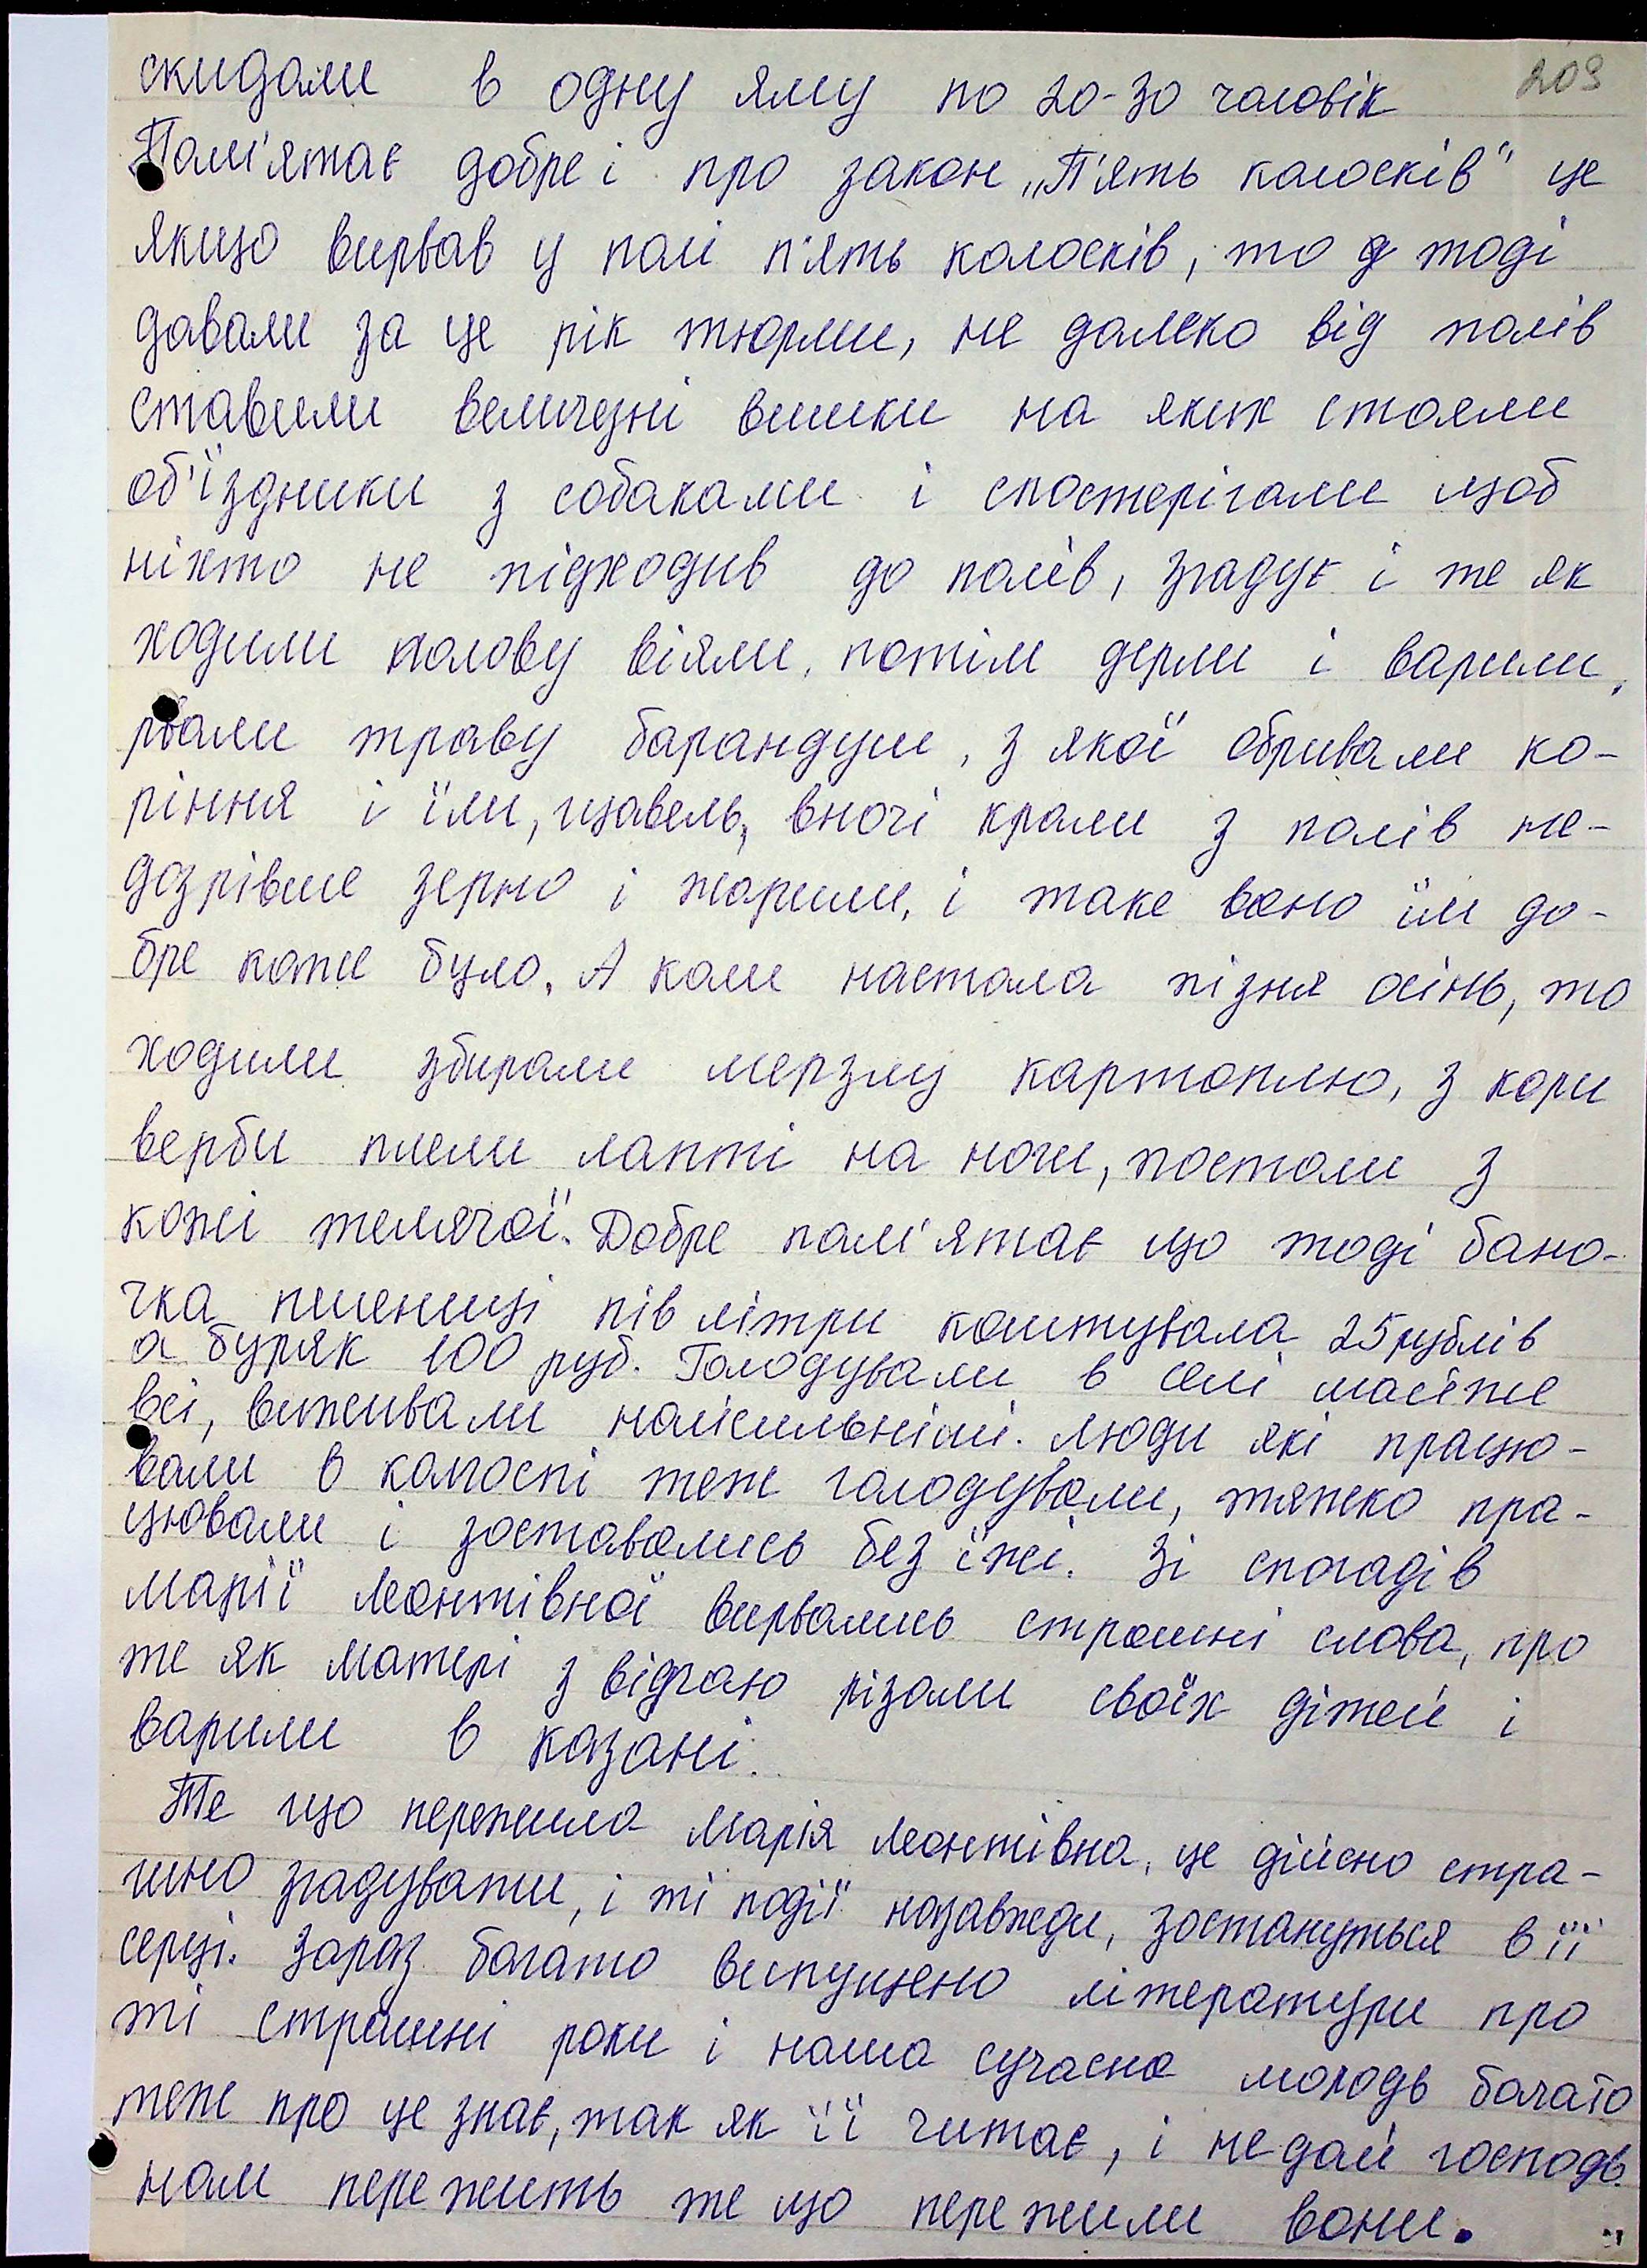 209
скидали в одну яму по 20-30 чоловік
Пам'ятає добре і про закон „П'ять колосків" це
якщо вирвав у полі п'ять колосків, то тоді
давали за це рік тюрми, не далеко від полів
ставили величезні вишки на яких стояли
об'їздники з собаками і спостерігали щоб
ніхто не підходив до полів, згадує і те як
ходили полову віяли, потім дерли і варили,
рвали траву барандуши, з якої обривали ко-
ріння і їли, щавель, вночі крали з полів не-
дозрівше зерно і жарили, і таке воно їм до-
бре каже було. А коли настала пізня осінь, то
ходили збирали мерзлу картоплю, з кори
верби плели лапті на ноги, постоли з
кожі телячої. Добре пам'ятає що тоді бано-
чка пшениці пів літри коштувала 25 рублів
а буряк 100 руб. Голодували в селі майже
всі, виживали найсильніші. Люди які працю-
вали в колгоспі теж голодували, тяжко пра-
цювали і зоставались без їжі. Зі спогадів
Марії Леонтівної вирвались страшні слова, про
те як матері з відчаю різали своїх дітей і
варили в казані.
Те що пережила Марія Леонтівна, це дійсно стра-
шно згадувати, і ті події назавжди, зостануться в її
серці. Зараз багато випущено літератури про
ті страшні роки і наша сучасна молодь багато
теж про це знає, так як її читає, і не дай господь
нам пережить те що пережили вони.